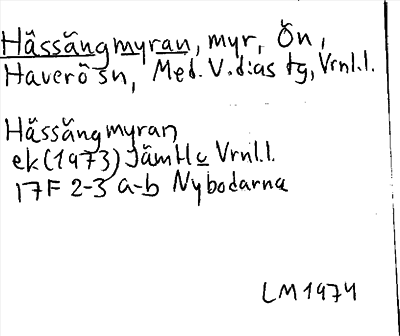 Hässängmyran, myr, Ön,
Haverö sn, Med. V. d:as tg, Vrnl.l.
Hässängmyran
ek (1973) Jämtl. Vrnl.l.
17F 2-3 a-b Nybodarna
LM 1974